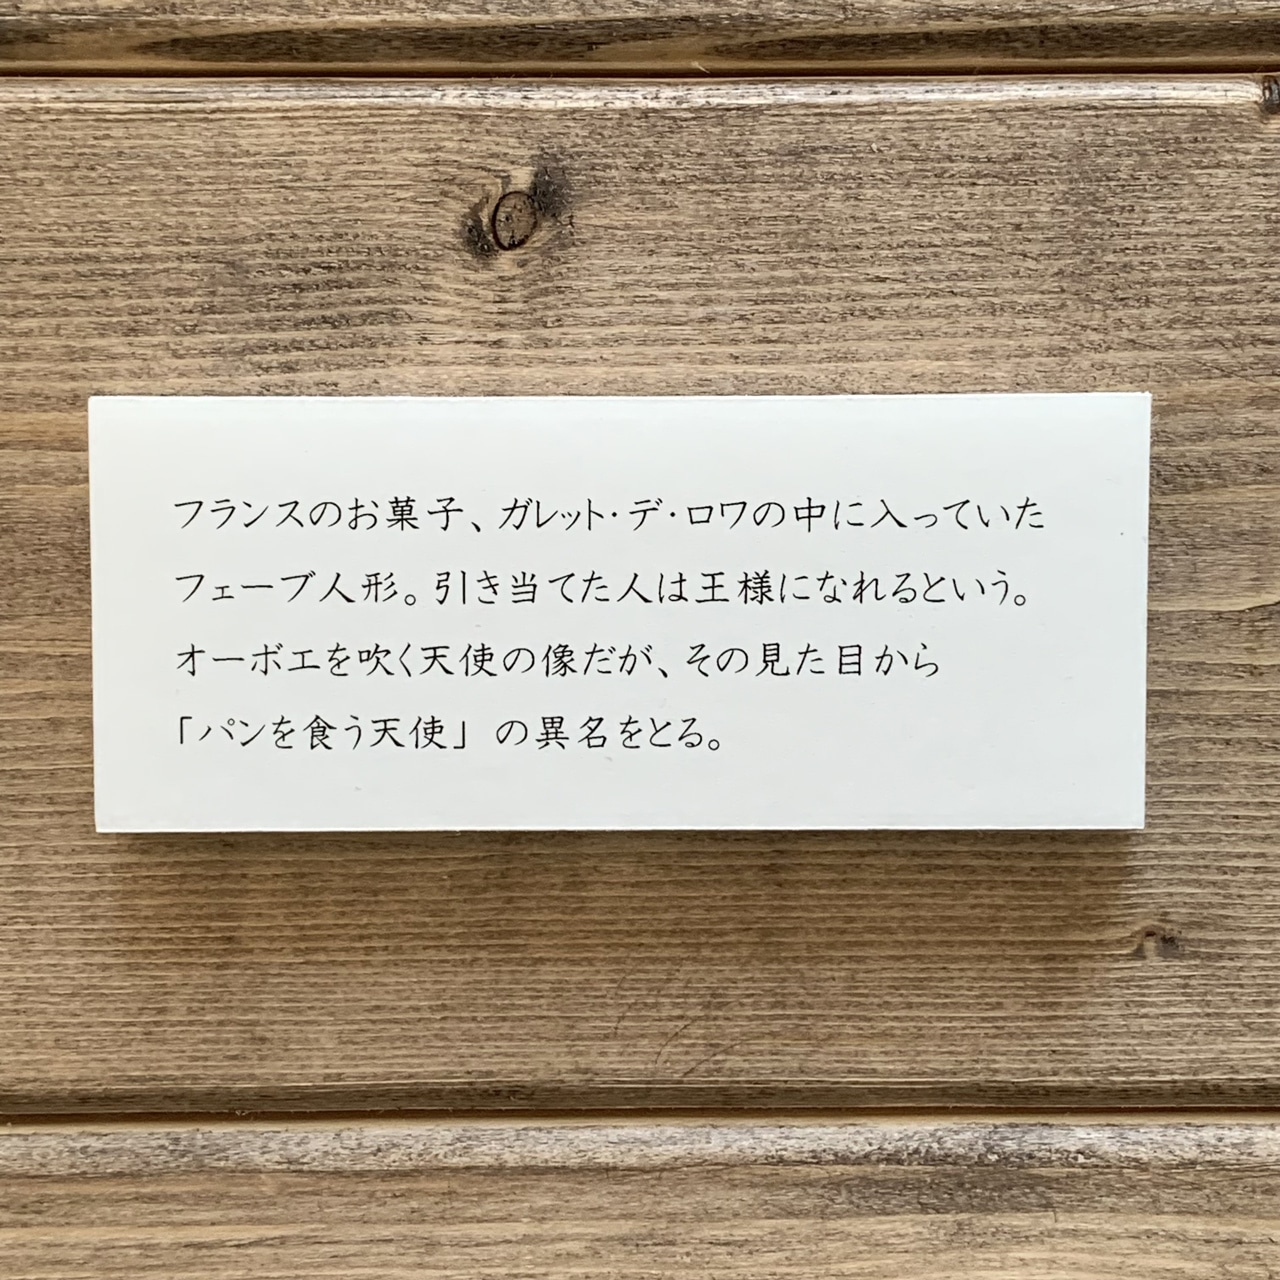 フランスのお菓子、ガレット・デ・ロワの中に入っていた
フェーブ人形。引き当てた人は王様になれるという。
オーボエを吹く天使の像だが、その見た目から
「パンを食う天使」の異名をとる。